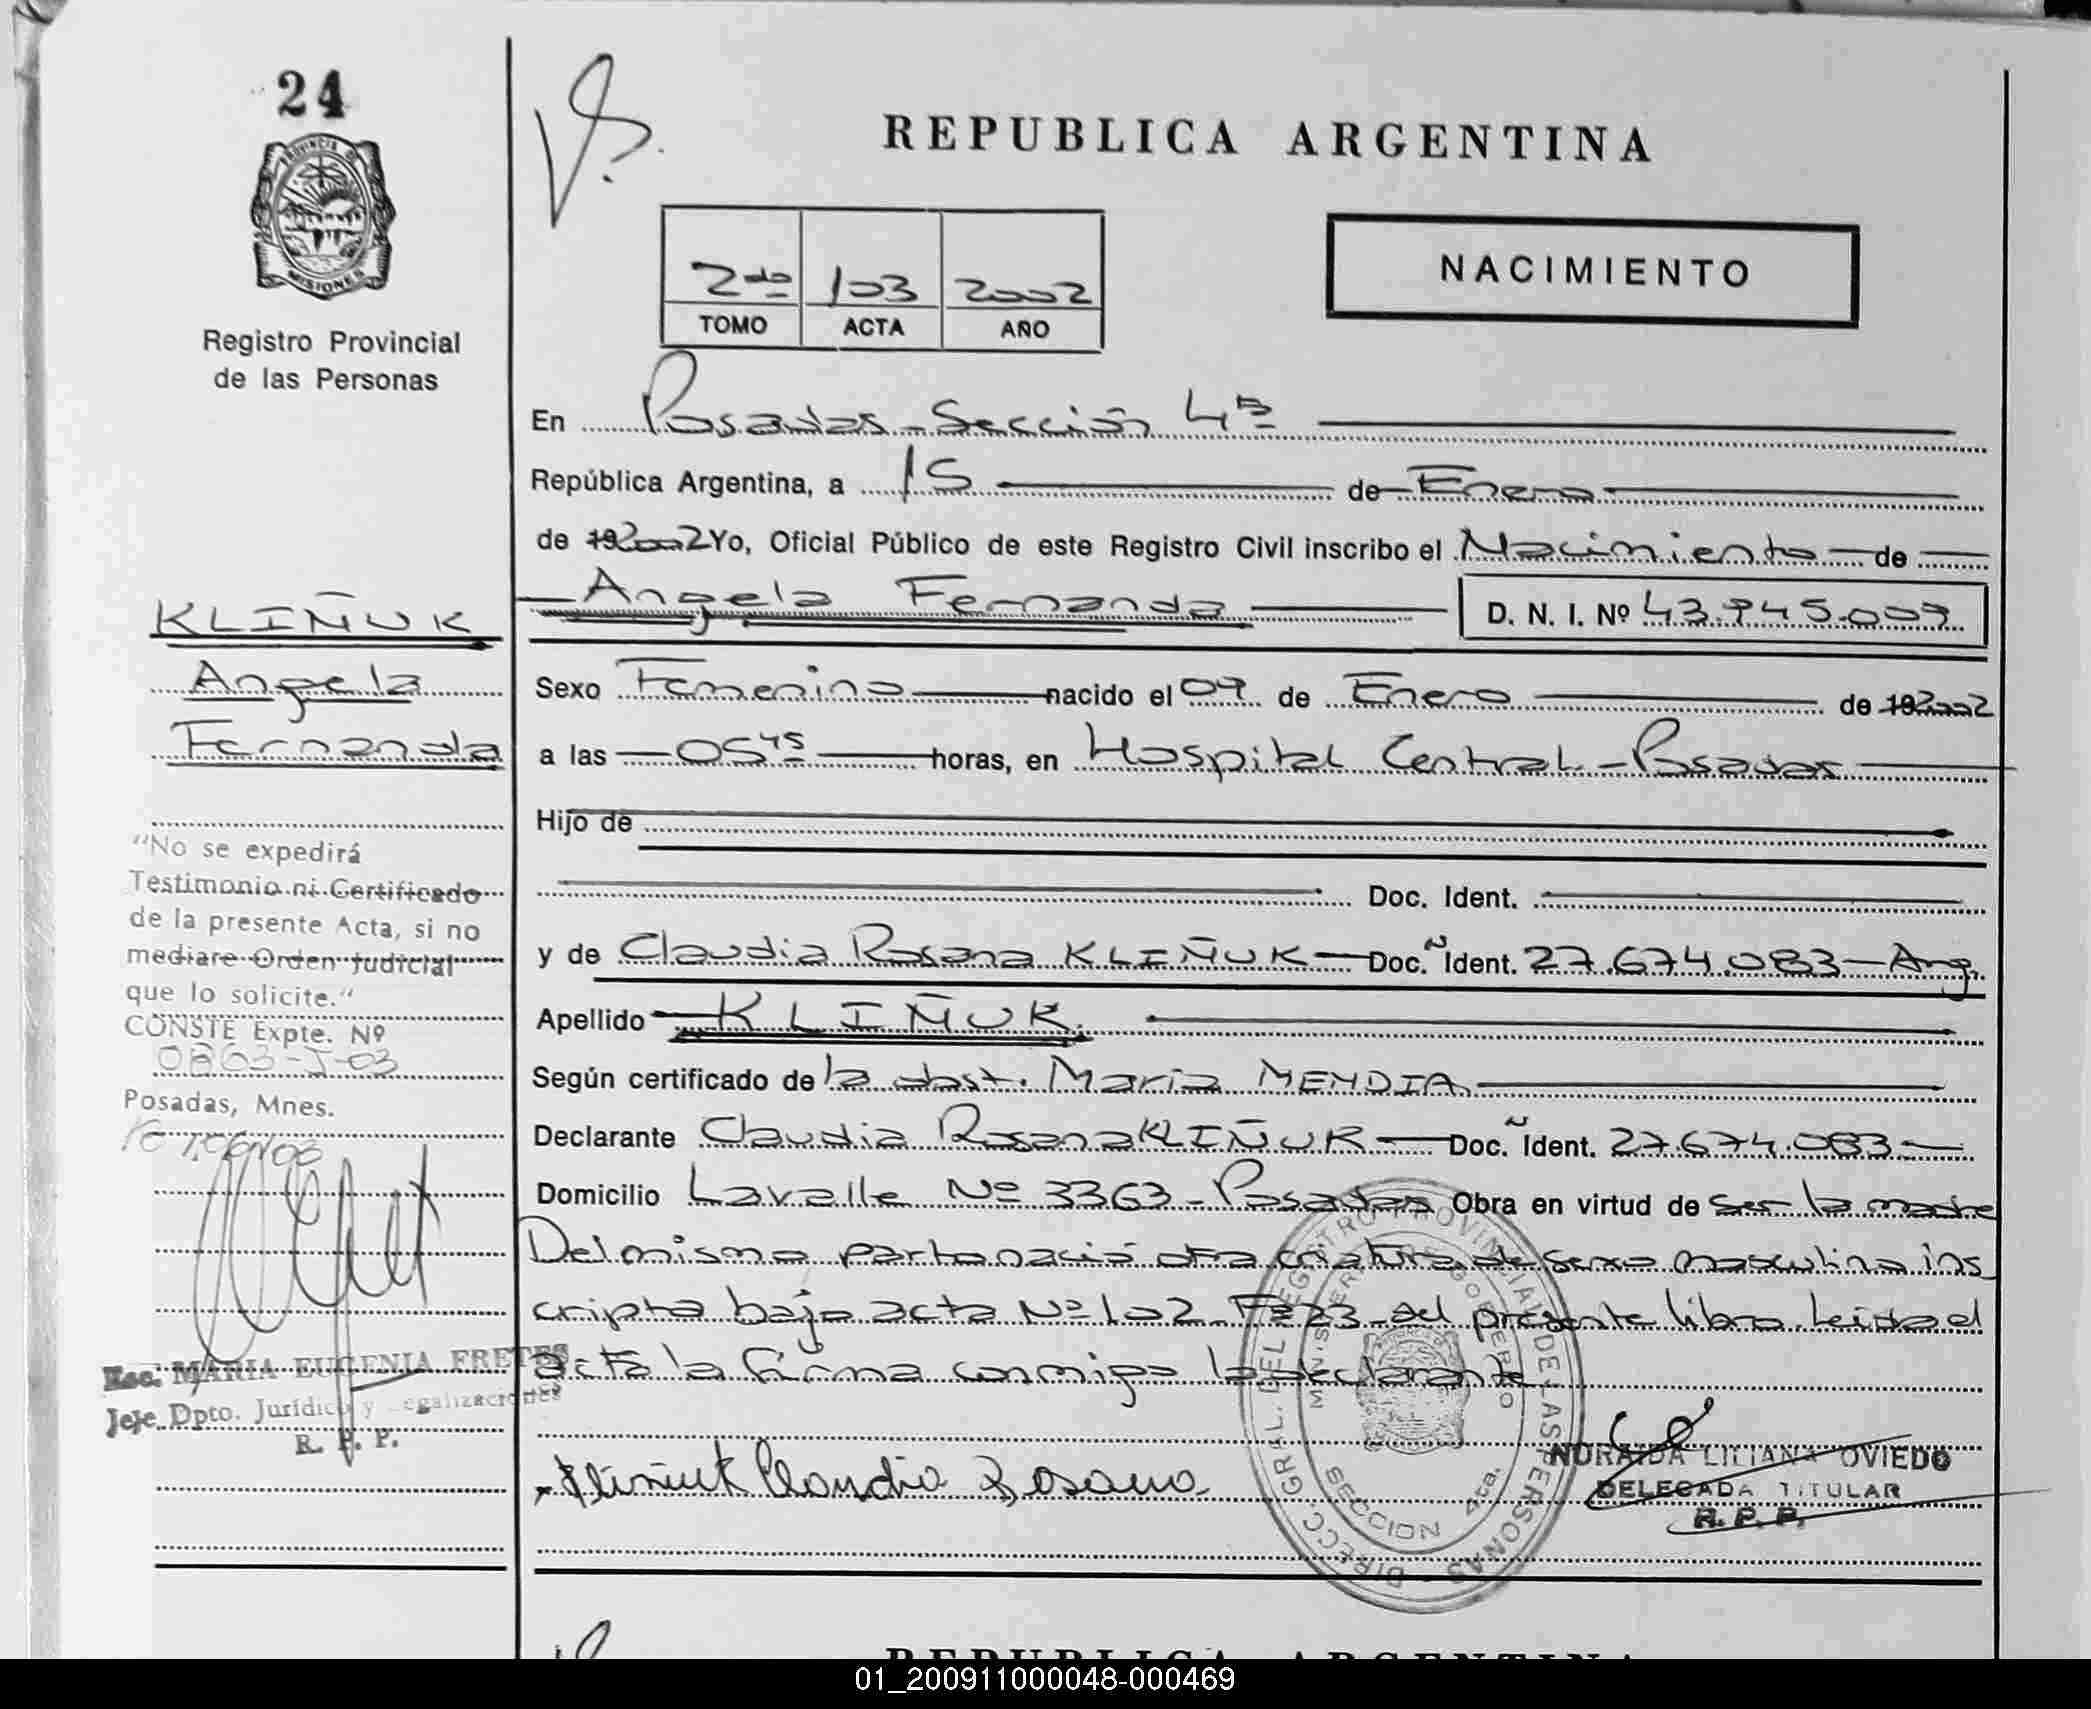 24
PROVINCIA DE
MISIONES
Registro Provincial
de las Personas
REPUBLICA ARGENTINA
2da 103 2002
TOMO ACTA AÑO
NACIMIENTO
En Posadas - Sección 4ta
República Argentina, a 15 de Enero
de 19 2002 Yo, Oficial Público de este Registro Civil inscribo el Nacimiento de
Angela Fernanda D. N. I. Nº 43.945.009
Sexo Femenino nacido el 09 de Enero de 19 2002
a las 05 45 horas, en Hospital Central - Posadas
Hijo de
Doc. Ident.
y de Claudia Rosana KLIÑUK Doc. Ident. 27.674.083 - Arg.
Apellido KLIÑUK.
Según certificado de la obst. Maria MENDIA
Declarante Claudia Rosana KLIÑUK Doc. Ident. 27.674.083
Domicilio Lavalle Nº 3363 - Posadas Obra en virtud de ser la madre
Del mismo parto nació otra criatura de sexo masculino ins
cripta bajo acta Nº 102 Fº 23 del presente libro Leida el
acta la firma conmigo la declarante
Kliñuk Claudia Rosana
NORAIDA LILIANA OVIEDO
DELEGADA TITULAR
R. P. P.
DIRECC. GRAL. DEL REGISTRO PROVINCIAL DE LAS PERSONAS
MINISTERIO GOBIERNO
SECCION 4ta.
KLIÑUK
Angela
Fernanda
"No se expedirá
Testimonio ni Certificado
de la presente Acta, si no
mediare Orden Judicial
que lo solicite."
CONSTE Expte. Nº
0863-J-03
Posadas, Mnes.
Esc. MARIA EUGENIA FRETES
Jefe Dpto. Jurídico y Legalizaciones
R. P. P.
REPUBLICA ARGENTINA
01_200911000048-000469